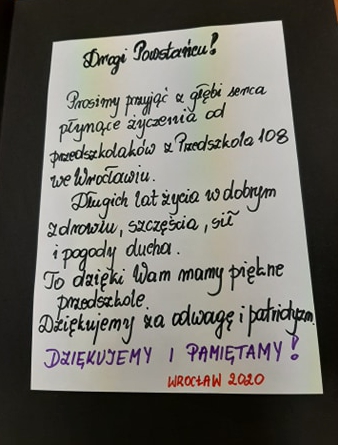 Drogi Powstańcu!
Prosimy przyjąć z głębi serca
płynące życzenia od
przedszkolaków z Przedszkola 108
we Wrocławiu.
Długich lat życia w dobrym
zdrowiu, szczęścia, sił
i pogody ducha.
To dzięki Wam mamy piękne
przedszkole.
Dziękujemy za odwagę i patriotyzm.
DZIĘKUJEMY I PAMIĘTAMY!
WROCŁAW 2020